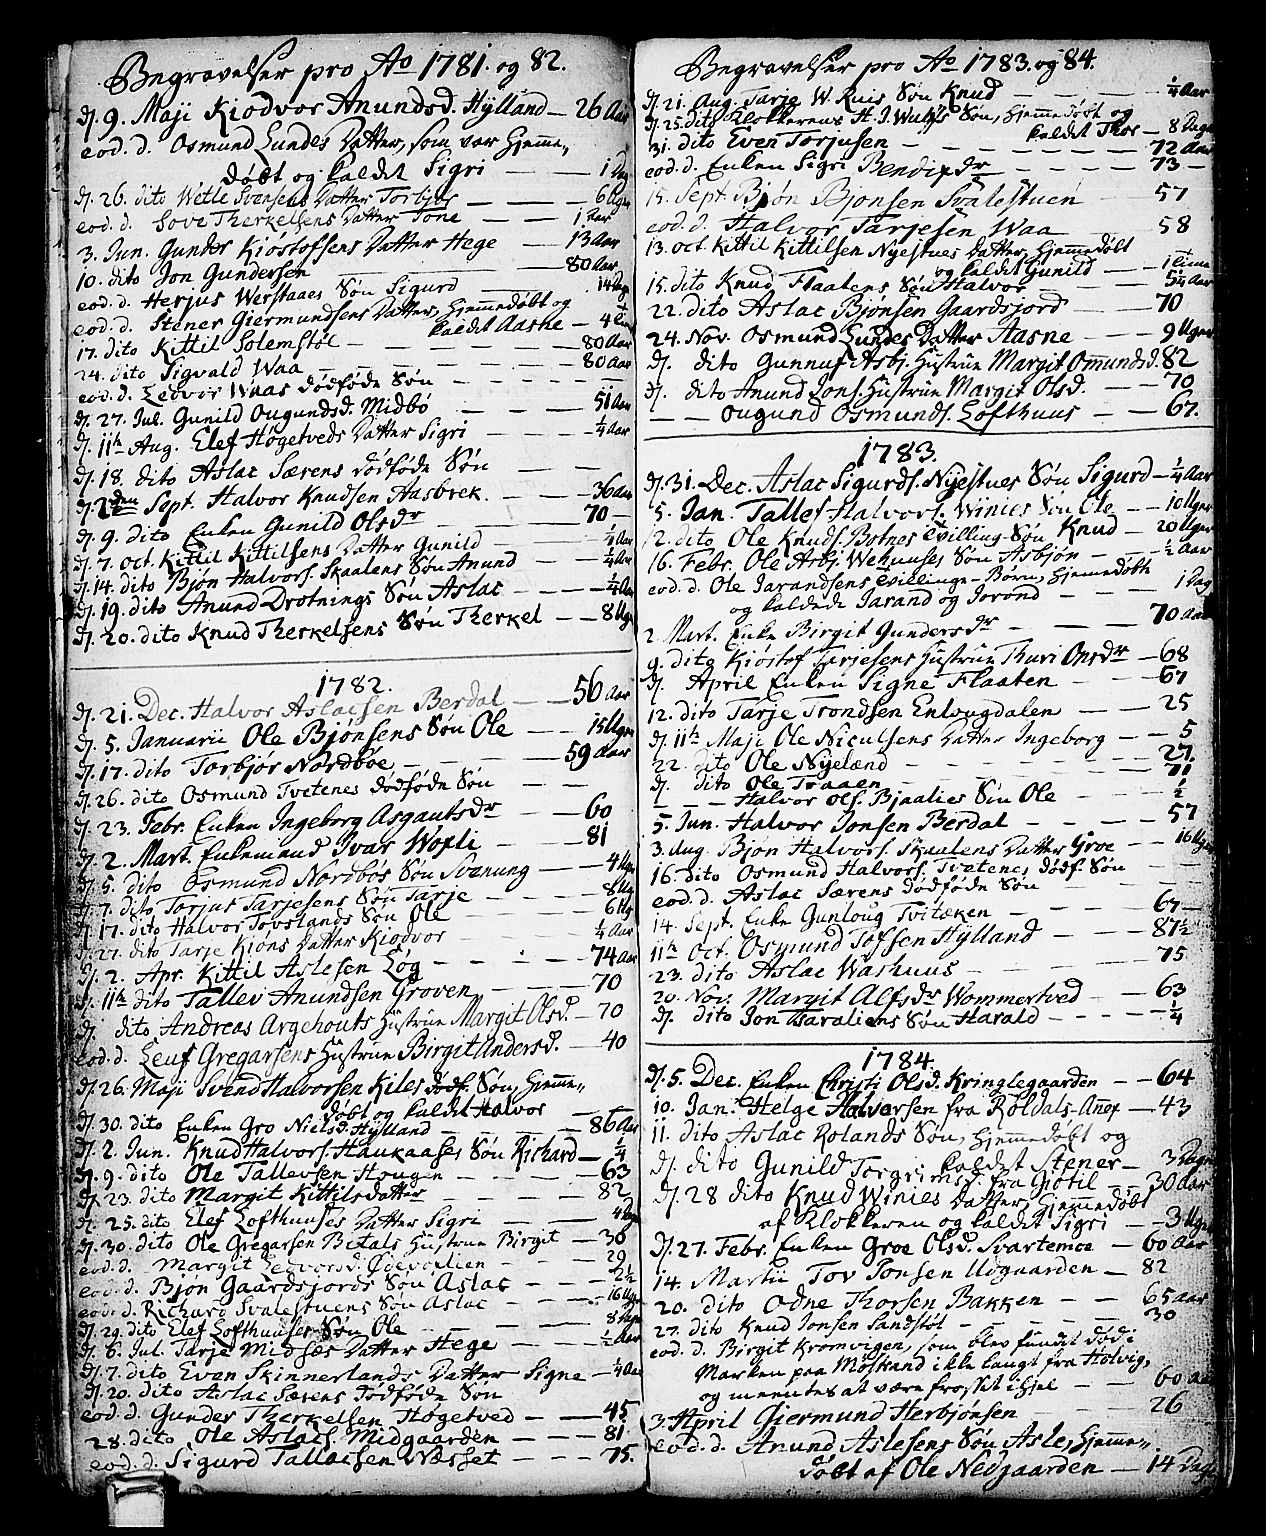 Begravelser pro Ao 1781. og 82.
d. 9. Maji Kiodvor Anundsd. Hÿlland — 26 Aar
eod. d. Osmund Lundes Datter, som var hjemme„
døbt og kaldet Sigri — 1 Dag
d. 26. dito Wetle Svensens Datter Torbjør — 6 Uger
eod. d. Sove Therkelsens Datter Tone — 1 Aar
3. Jun. Gunder Kiostofsens Datter Hege — 13 Aar
10. dito Jon Gundersen — 80 Aar
eod. d. Herjus Werstaaes Søn Sigurd — 14 Dage
eod. d. Stener Giermundsens Datter hjemmedøbt og
kaldet Aasne — 4
17. dito Kittil Solemstøl — 80 Aar
24. dito Sigvald Waa — 80 Aar
eod. d. Ledvor Waas dødføde Søn
d. 27. Jul. Gunild Ougundsd. Midbø — 51 Aar
d. 11te Aug. Elef Høgetveds Datter Sigri — 1/4 Aar
d. 18. dito Aslac Særens dødføde Søn
d. 2den Sept. Halvor Knudsen Aasbrek. — 36 Aar
d. 9. dito Enken Gunild Olsdr — 70 —
d. 7. Oct. Kittil Kittilsens Datter Gunild — 1/4 Aar
d. 14. dito Bjøn Halvors. Skaalens Søn Anund — 1/4 Aar
d. 19. dito Anund Drotnings Søn Aslac — 1/4 Aar
d. 20. dito Knud Therkelsens Søn Therkel — 8 Uger
1782.
d. 21. Dec. Halvor Aslacsen Berdal — 56 Aar
d. 5. Januarii Ole Bjønsens Søn Ole — 15 Uger
d. 17. dito Torbjør Nordbøe — 59 Aar
d. 26. dito Osmund Tvetenes dødføde Søn
d. 23. Febr. Enken Ingeborg Asgautsdr — 60
d. 2. Mart. Enkemand Ivar Woxli — 81
d. 5. dito Osmund Nordbøs Søn Svenung — 4 Uger
d. 7. dito Torjus Tarjesens Søn Tarje — 8 Ug
d. 17. dito Halvor Tovslands Søn Ole — 6 Ug
d. 27. dito Tarje Kiøns Datter Kiodvor — 1/4 Aar
d. 2. Apr. Kittil Aslesen Løg — 74 Aar
d. 11te dito Tallev Anundsen Groven — 70
d. dito Andreas Argehouts Hustrue Margit Olsd. — 70
eod. d. Leuf Gregarsens Hustrue Birgit Andersd. — 40
d. 26. Maji Svend Halvorsen Kiles dødf. Søn, hjemme„
døbt og kaldet Halvor
d. 30. dito Enken Gro Nielsd. Hÿlland — 86 Aar
d. 2. Jun. Knud Halvors. Haukaases Søn Richard — 1/4
d. 9. dito Ole Tallevsen Hougen — 63
d. 23. dito Margit Kittilsdatter — 82
d. 25. dito Elef Lofthuuses Datter Sigri — 4
d. 30. dito Ole Gregarsen Bitals Hustrue Birgit — 30
eod. d. Margit Ledvorsd. — 29
eod. d. Bjøn Gaardsjords Søn Aslac — 2 1/2
eod. d. Richard Svalestuens Søn Aslac — 16 Uger
d. 29. dito Elef Lofthuuses Søn Ole — 8 Dage
d. 6. Jul. Tarje Midsæs Datter Hege — 1/2 Aar
d. 7. dito Even Skinnerlands Datter Signe — 1/4 Aar
d. 20. dito Aslac Særens dødføde Søn
eod. d. Gunder Therkelsen Høgetved — 45.
28. dito Ole Aslacs. Midgaarden — 81.
eod. d. Sigurd Tallacsen Næsset — 75.
Begravelser pro Ao 1783. og 84.
d. 21. Aug. Tarje W. Ruis Søn Knud — 1/4 Aar
d. 25. dito Klokkerens H. J. Søn, hjemmedøbt og
kaldet Thor — 8 Dage
31. dito Even Torjusen — 72 Aar
eod. d. Enken Sigri Bendixdr — 73 —
15. Sept. Bjøn Bjønsen Svalestuen — 57
eod. d. Halvor Tarjesen Waa — 58
13. Oct. Kittil Kittilsen Nÿestues Datter, hjemmedøbt
og kaldet Gunild — 1
15. dito Knud Flaatens Søn Halvor — 5 1/4 Aar
22. dito Aslac Bjønsen Gaardsjord — 70
24. Nov. Osmund Lundes Datter Aasne — 9 Uger
d. dito Gunnuf Asbj. Hustrue Margit Omundsd. 82
d. dito Anund Jons. Hustrue Margit Olsd. — 70
— — Ougund Osmunds. Lofthuus — 67.
1783.
d. 31. Dec. Aslac Sigurds. Nÿestues Søn Sigurd — 1/4 Aar
5. Jan. Tallef Halvors. Winies Søn Ole — 10 Uger
12. dito Ole Knuds. Botnes Tvilling-Søn Knud — 20 Uger
16. Febr. Ole Asbj. Wehuuses Søn Asbjøn — 1/2 Aar
eod. d. Ole Jarandsens Tvillinge-Børn, hjemmedøbte
og kaldede Jarand og Jorond — 1 Dag
2. Mart. Enke Birgit Gundersdr — 70 Aar
9. dito Kiostof Tarjesens Hustrue Thuri Onsdr — 68
d. April Enken Signe Flaaten — 67
12. dito Tarje Trondsen Enlougdalen — 25
d. 11te Maji Ole Niculsens Datter Ingeborg — 5
22. dito Ole Nÿelænd — 27.
d. dito Ole Traaen — 71
— — — Halvor Ols. Bjaalies Søn Ole — 1/2
5. Jun. Halvor Jonsen Berdal — 57
3. Aug. Bjøn Halvors. Skaalens Datter Groe — 16 Uger
16. dito Osmund Halvors. Tvetenes dødf. Søn
eod. d. Aslac Særens dødføde Søn
14. Sept. Enke Gunloug Tvitæken — 67 —
11te Oct. Osmund Tofsen Hÿlland — 87 1/2
23. dito Aslac Washuus — 75
20. Nov. Margit Alfsdr Wommertved — 63
d. dito Jon Haraliens Søn Harald — 1/4
1784.
d. 5. Dec. Enken Christi Olsd. Kringlegaarden — 64
10. Jan. Helge Halvorsen fra Røldals-Anex — 43
11. dito Aslac Rolands Søn, hjemmedøbt og
kaldet Stener — 3 Dage
d. dito Gunild Torgrimsd. fra Giøtil — 30 Aar
d. 28 dito Knud Winies Datter, hjemmedøbt
af Klokkeren og kaldet Sigri — 3 Uger
d. 27. Febr. Enken Groe Olsd. Svartemoe — 60 Aar
14. Martii Tov Jonsen Udgaarden — 82
20. dito Odne Thorsen Bakken — 65 Aar
27. dito Knud Jonsen Sandstøl — 30
eod. d. Birgit Kromvigen, som blev fundet død i
Marken paa Møstrand ikke langt fra Holvig,
og meentes at være frosset ihjel — 60 Aar
3. April Giermund Herbjønsen — 26
eod. d. Anund Aslesens Søn Asle, hjemme„
døbt af Ole Nedgaarden — 14 Dage